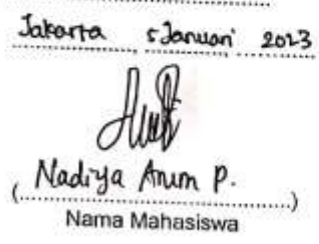 Jakarta 5 Januari 2023
Nadiya Anim P.
(..............................)
Nama Mahasiswa